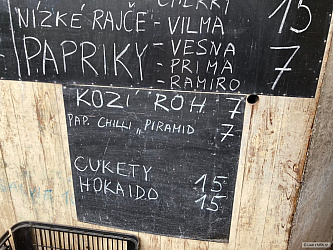 CHERRY 15
NÍZKÉ RAJČE - VILMA
PAPRIKY - VESNA
- PRIMA 7
- RAMIRO
KOZÍ ROH 7
PAP. CHILLI „PIRAMID 7
CUKETY 15
HOKAIDO 15